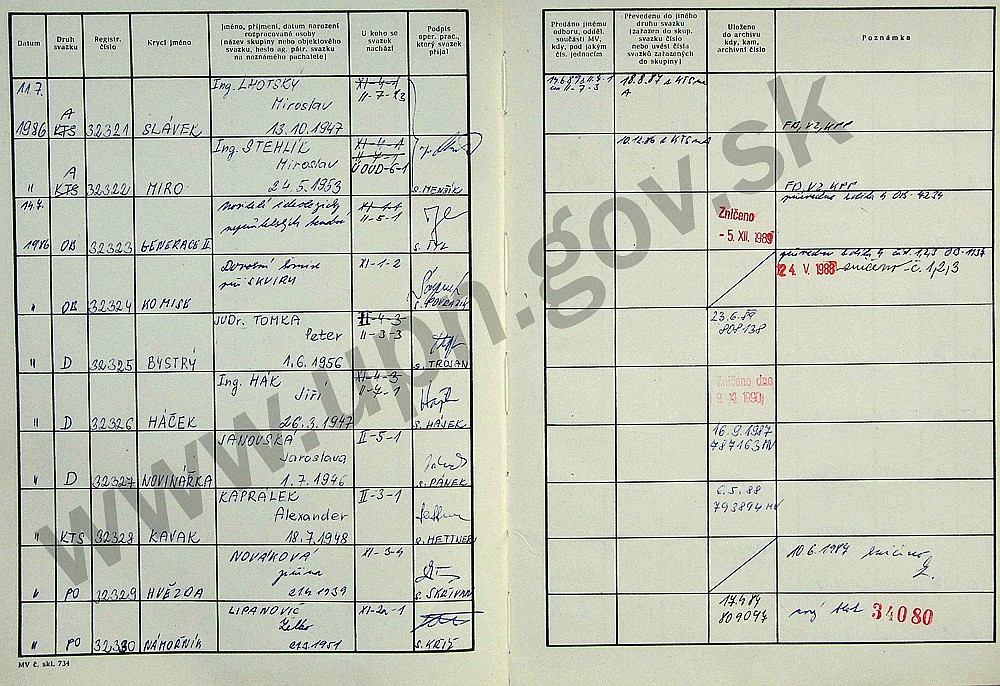 Datum
Druh svazku
Registr. číslo
Krycí jméno
Jméno, příjmení, datum narození
rozpracované osoby
(název skupiny nebo objektového
svazku, heslo ag. pátr. svazku
na neznámého pachatele)
U koho se
svazek
nachází
Podpis
oper. prac.,
který svazek
přijal
Předáno jinému
odboru, odděl.
součásti MV,
kdy, pod jakým
čís. jednacím
Převedeno do jiného
druhu svazku
(zařazen do skup.
svazku číslo
nebo uvést čísla
svazků zařazených
do skupiny)
Uloženo
do archivu
kdy, kam,
archivní číslo
Poznámka
11.7. Ing. LHOTSKÝ XI-4-1
A Miroslav II-7-13
1986 KTS 32321 SLÁVEK 13.10.1947
18.8.87 z KTS na
A
FD, VZ, KPP
Ing. STEHLÍK XI-4-1
A Miroslav II-4-1
" KTS 32322 MIRO 24.5.1953 ÚOUD-6-1 s. MENŠÍK
10.12.86 z KTS na A
FD, VZ, KPP
14.7. Nositelé ideologicky XI-1-1
nepřátelských II-5-1
1986 OB 32323 GENERACE II s. TYL
Zničeno
- 5. XII. 1989
OB-4234
Dozorčí komise XI-1-2
při SKVIRU
" OB 32324 KOMISE
24. V. 1988 zničeno č. 1,2,3
JUDr. TOMKA II-4-3
Peter II-3-3
" D 32325 BYSTRÝ 1.6.1956 s. TROJAN
23.6.89
808138
Ing. HÁK XI-4-3
Jiří II-7-1
" D 32326 HÁČEK 26.3.1947 s. HÁJEK
Zničeno dne
9. XI. 1990
JANOVSKÁ II-5-1
Jaroslava
" D 32327 NOVINÁŘKA 1.7.1946 s. PÁNEK
16.9.1987
787163 MV
KAPRÁLEK II-3-1
Alexander
" KTS 32328 KAVAK 18.7.1948 s. METTNER
6.5.88
793894 MV
NOVÁKOVÁ XI-3-4
Jiřina
" PO 32329 HVĚZDA 21.4.1939 s. SKŘIVAN
10.6.1987 zničeno
LIPANOVIČ XI-2a-1
" PO 32330 NÁMOŘNÍK s. KŘÍŽ
17.4.89
809097
nový blok 34080
MV č. skl. 734
www.upn.gov.sk